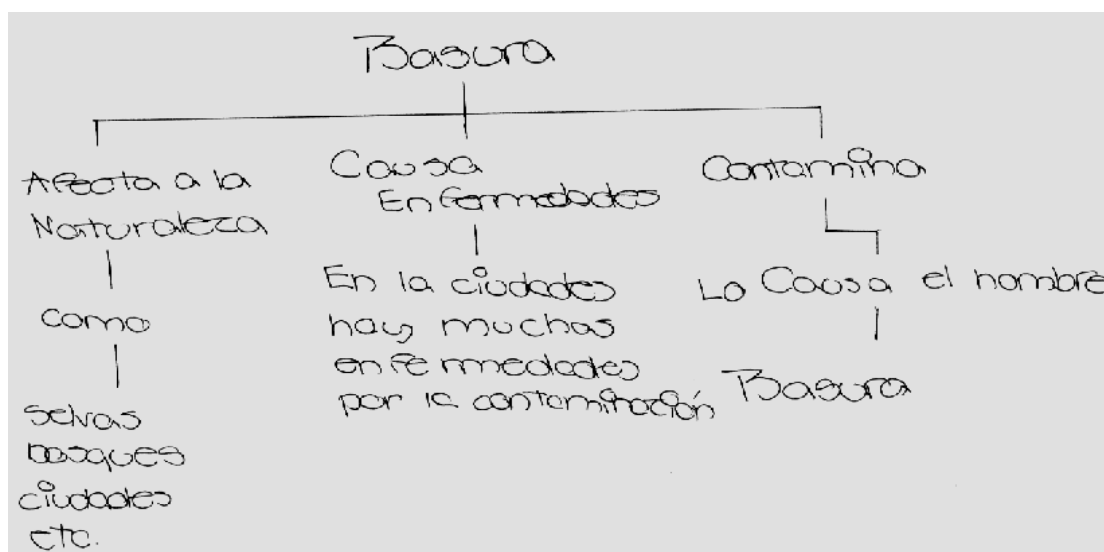 Basura
Afecta a la
Naturaleza
como
selvas
bosques
ciudades
etc.
Causa
Enfermedades
En la ciudades
hay muchas
enfermedades
por la contaminación
Contamina
Lo Causa el hombre
Basura